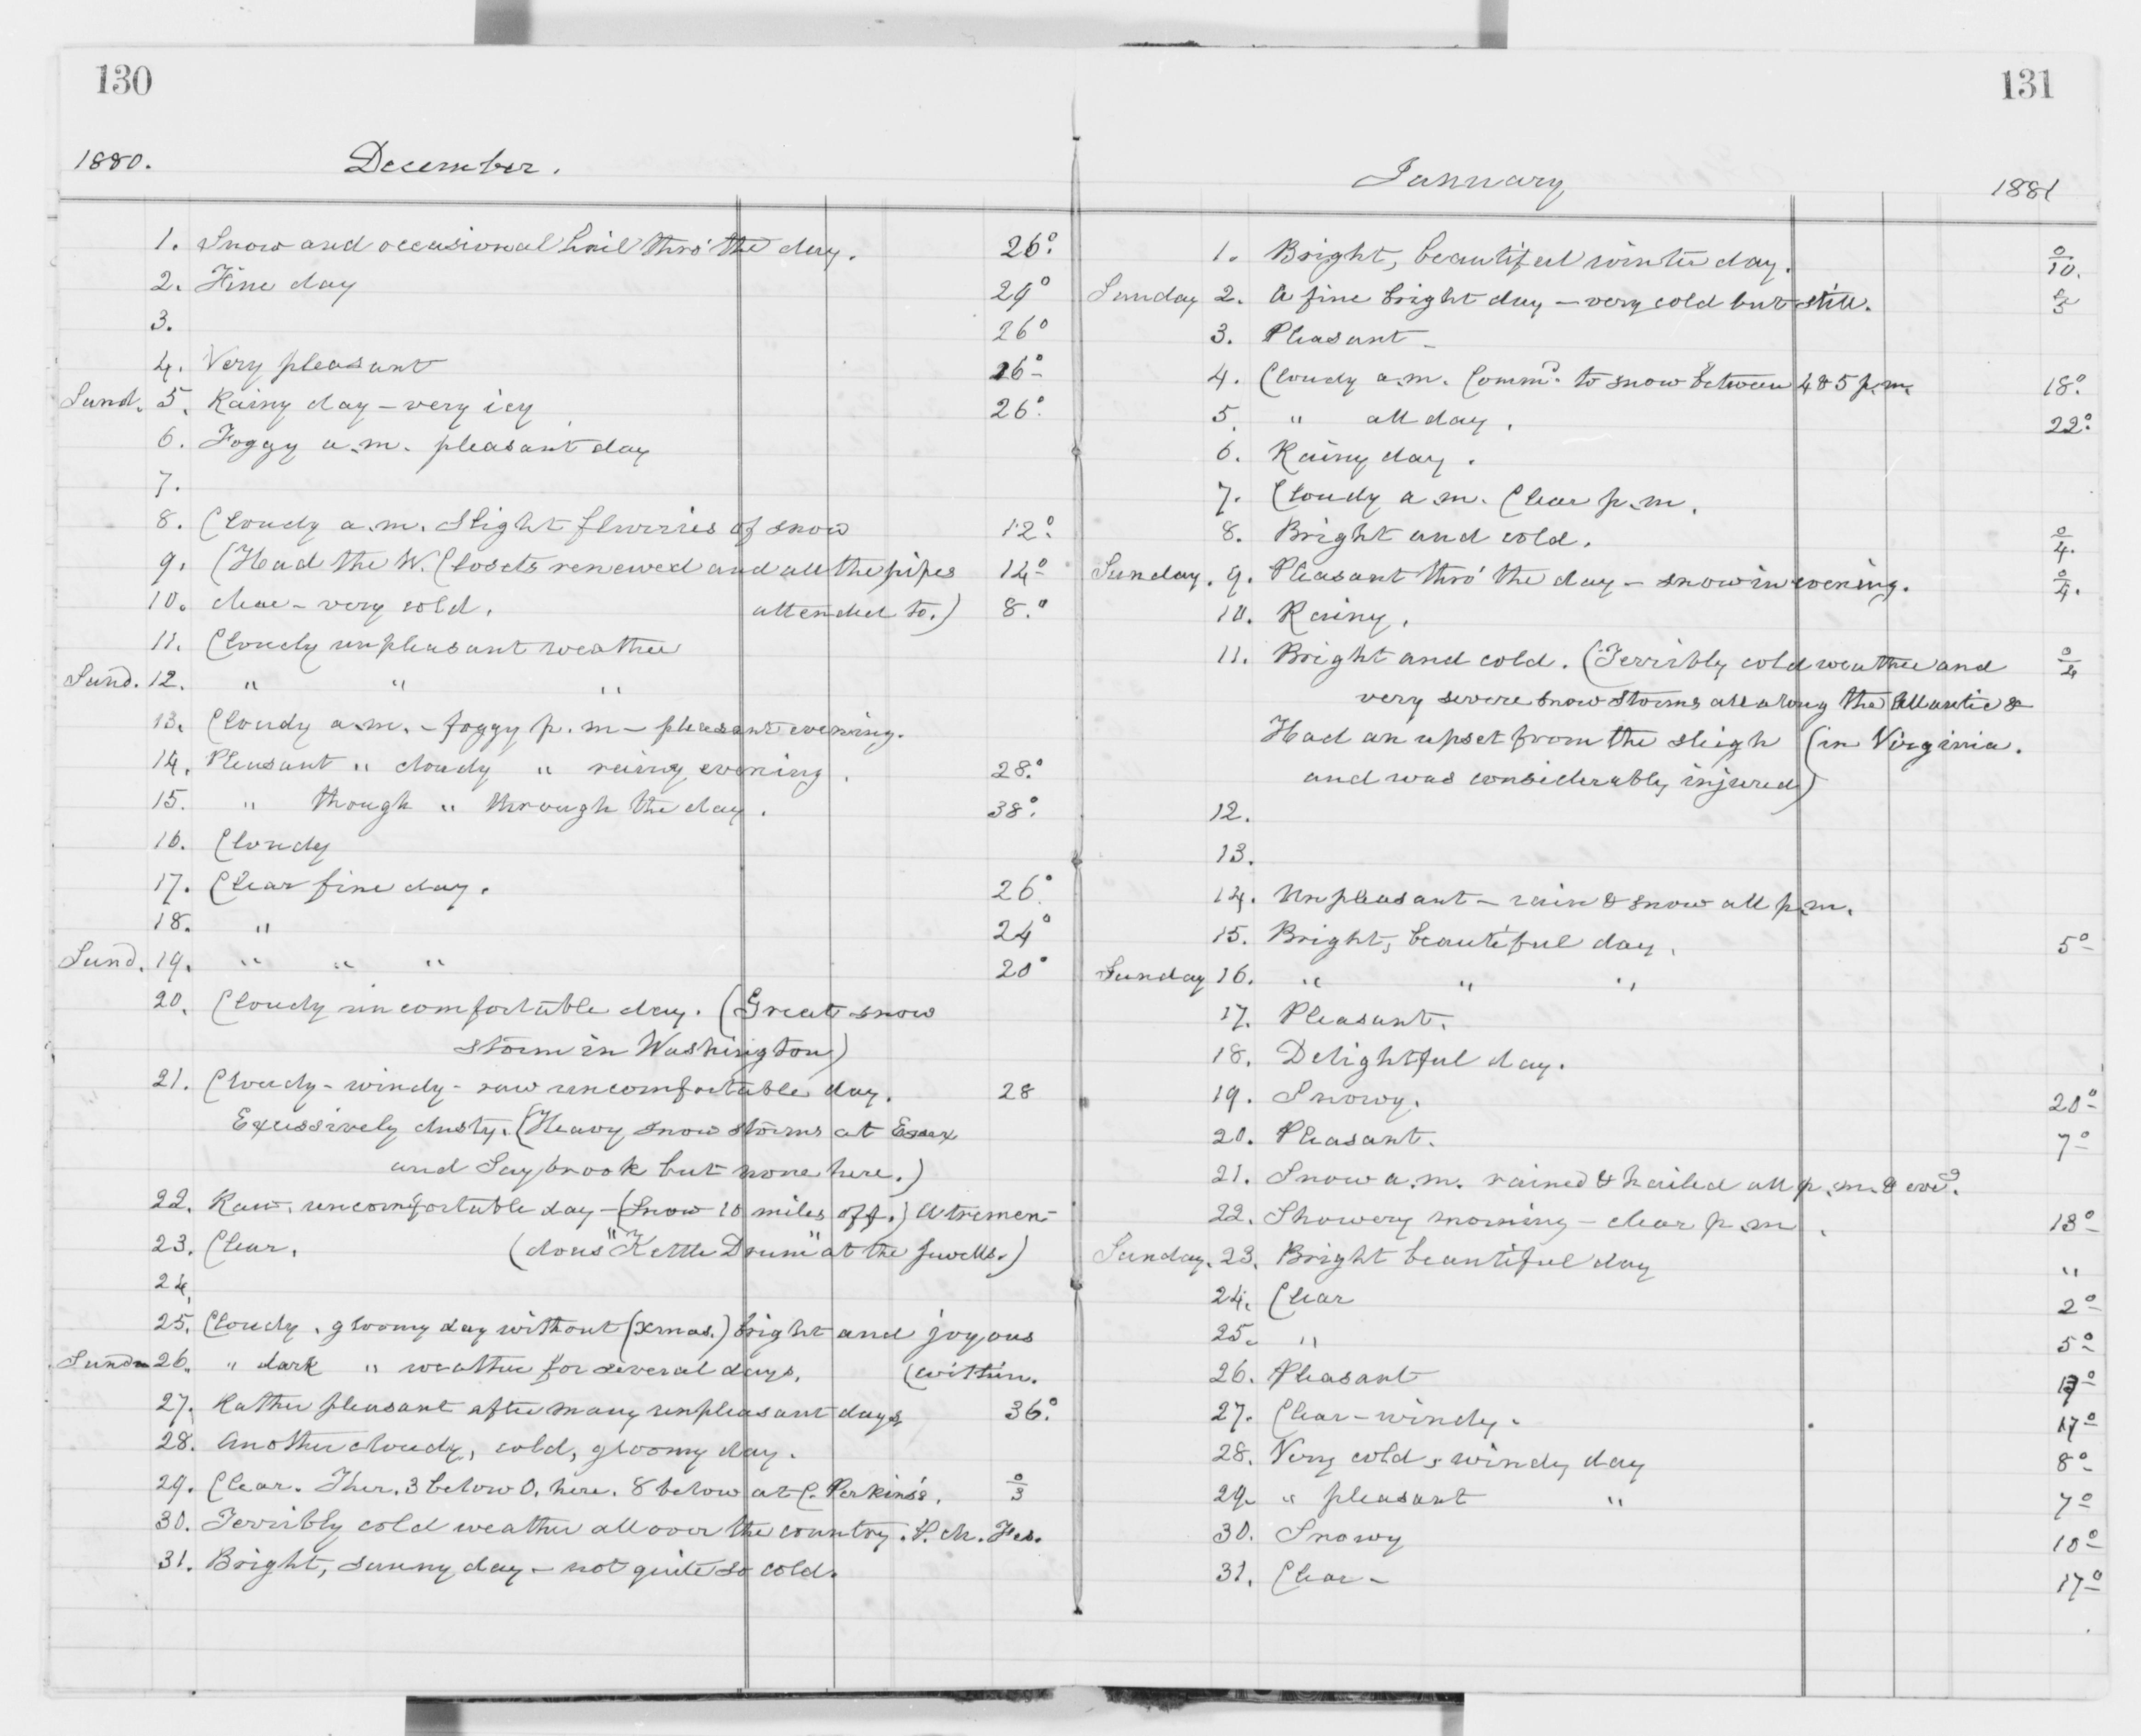 130
1880. December.
1. Snow and occasional hail thro' the day. 26°
2. Fine day 29°
3. 26°
4. Very pleasant 26°
Sund. 5. Rainy day – very icy 26°
6. Foggy a.m. pleasant day
7.
8. Cloudy a.m. Slight flurries of snow 12°
9. (Had the W. Closets renewed and all the pipes 14°
10. clear – very cold. attended to.) 8°
11. Cloudy unpleasant weather
Sund. 12. " " "
13. Cloudy a.m. – foggy p.m – pleasant evening.
14. Pleasant " cloudy " rainy evening. 28°
15. " though " through the day. 38°
16. Cloudy
17. Clear fine day. 26°
18. " 24°
Sund. 19. " " " 20°
20. Cloudy uncomfortable day. (Great snow
storm in Washington)
21. Cloudy – windy – raw uncomfortable day. 28
Excessively dusty. (Heavy snow storms at Essex
and Saybrook but none here.)
22. Raw, uncomfortable day – (Snow 10 miles off.) A tremen-
23. Clear. (dous "Kettle Drum" at the Jewells.)
24.
25. Cloudy, gloomy day without (Xmas.) bright and joyous
Sund. 26. " dark " weather for several days. (within.
27. Rather pleasant after many unpleasant days 36°
28. Another cloudy, cold, gloomy day.
29. Clear. Ther. 3 below 0. here. 8 below at C. Perkins's. 0/3
30. Terribly cold weather all over the country. P. Ch. Fes.
31. Bright, sunny day – not quite so cold.
131
January 1881
1. Bright, beautiful winter day. 0/10.
Sunday 2. A fine bright day – very cold but still. 0/5
3. Pleasant –
4. Cloudy a.m. Commd. to snow between 4 & 5 p.m. 18°
5. " all day. 22°
6. Rainy day.
7. Cloudy a.m. Clear p.m.
8. Bright and cold. 0/4.
Sunday. 9. Pleasant thro' the day – snow in evening. 0/4.
10. Rainy.
11. Bright and cold. (Terribly cold weather and 0/4
very severe snow storms all along the Atlantic &
Had an upset from the sleigh (in Virginia.
and was considerably injured)
12.
13.
14. Unpleasant – rain & snow all p.m.
15. Bright, beautiful day. 5°
Sunday 16. " " "
17. Pleasant.
18. Delightful day.
19. Snowy. 20°
20. Pleasant. 7°
21. Snow a.m. rained & hailed all p.m. & eveg.
22. Showery morning – clear p.m. 13°
Sunday. 23. Bright beautiful day "
24. Clear 2°
25. " 5°
26. Pleasant
27. Clear – windy. 17°
28. Very cold, windy day 8°
29. " pleasant " 7°
30. Snowy 10°
31. Clear – 17°